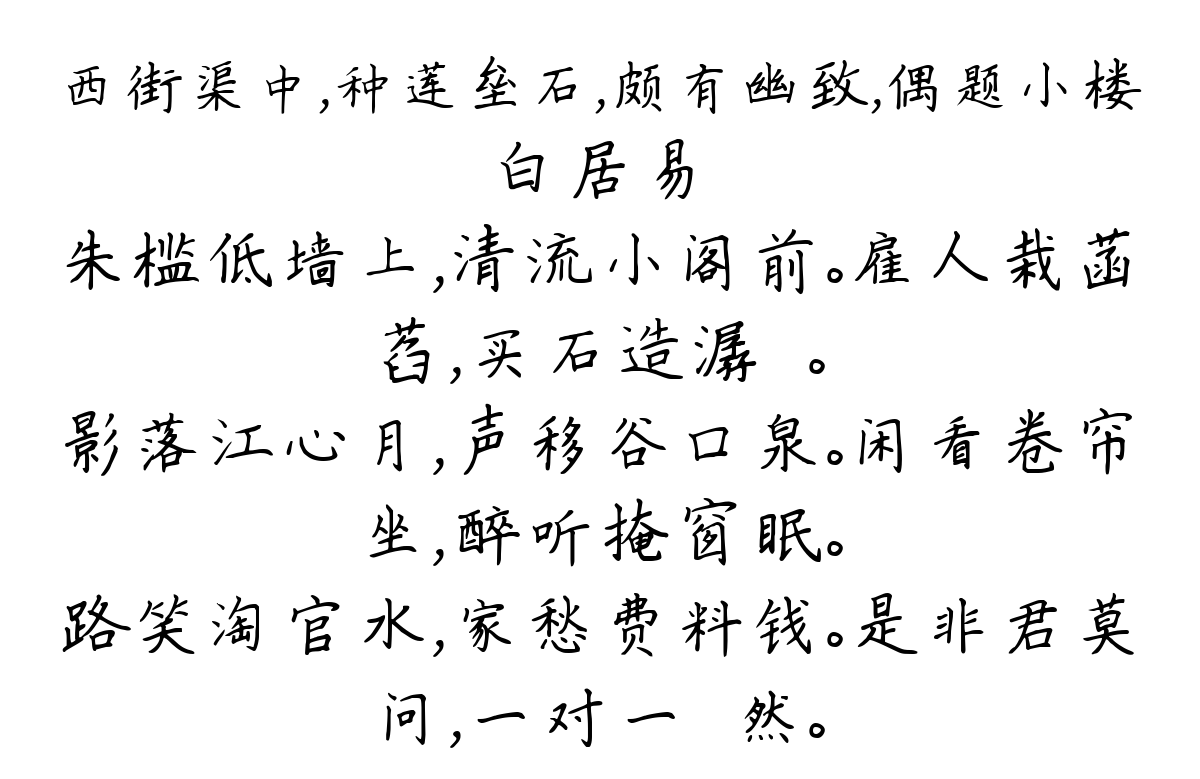 西街渠中,种莲垒石,颇有幽致,偶题小楼
白居易
朱槛低墙上,清流小阁前。雇人栽菡
萏,买石造潺 。
影落江心月,声移谷口泉。闲看卷帘
坐,醉听掩窗眠。
路笑淘官水,家愁费料钱。是非君莫
问,一对一 然。